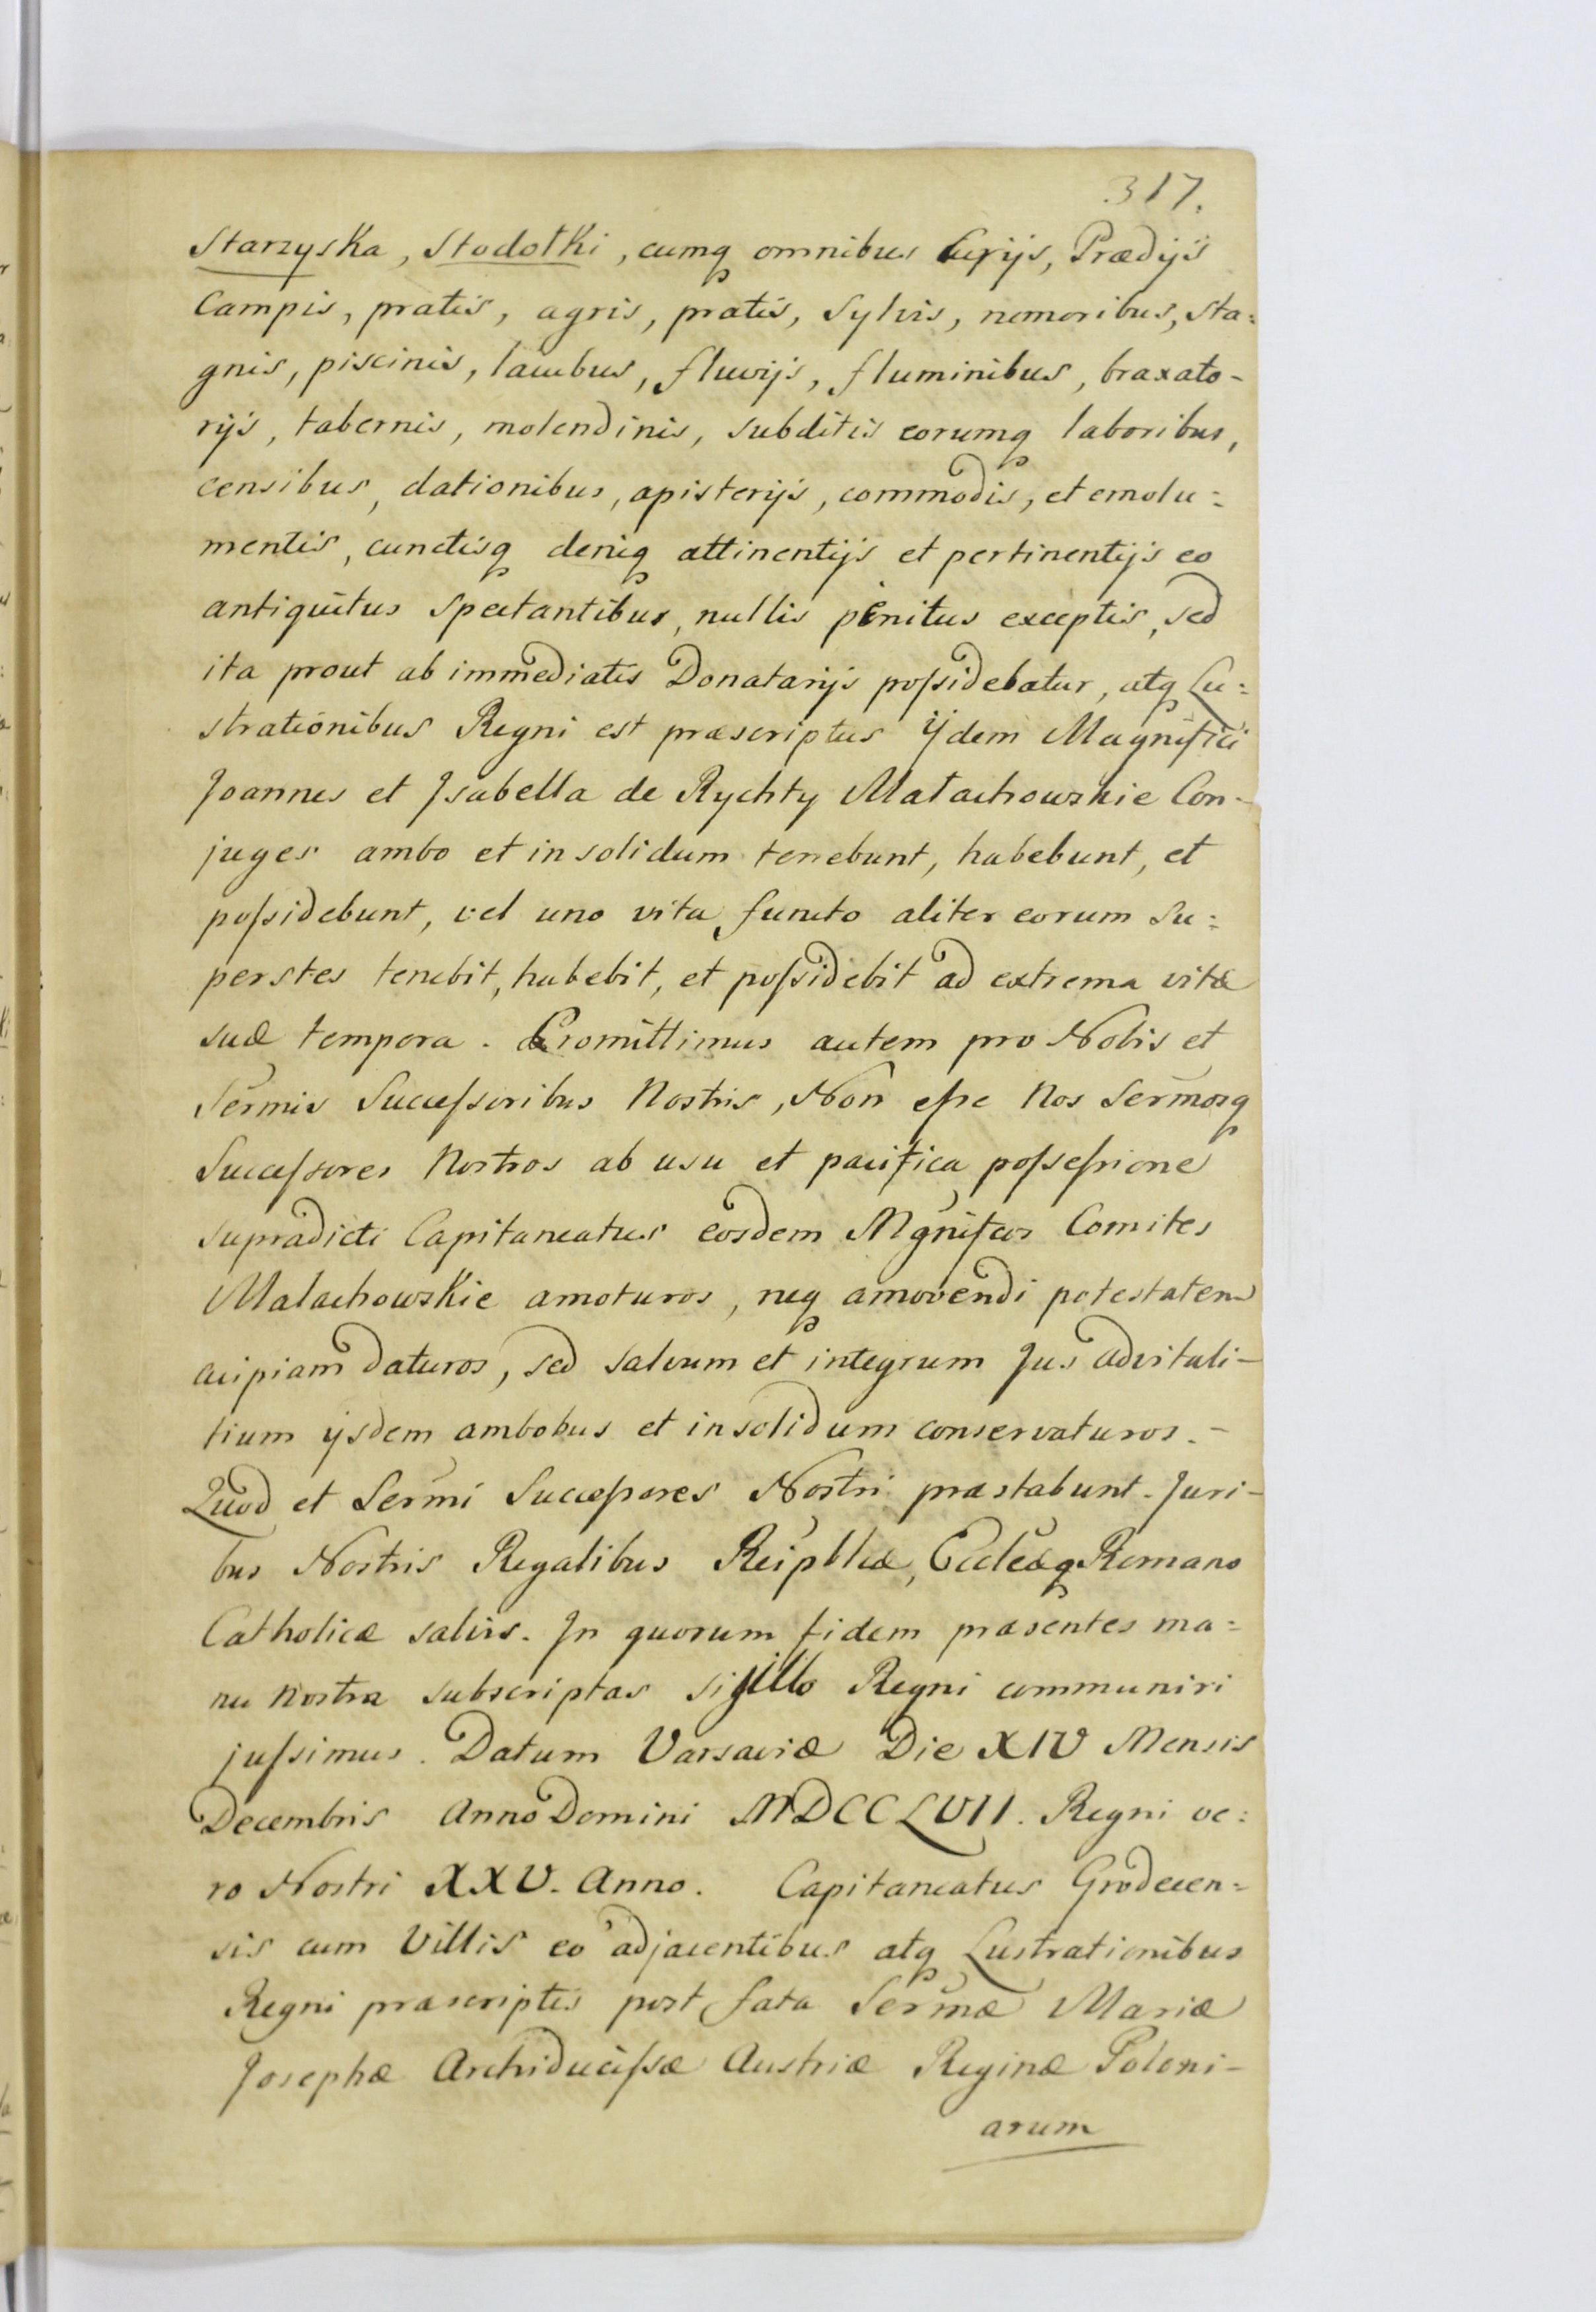 317.
Starzyska, Stodołki, cumq omnibus Curijs, Prædijs
Campis, pratis, agris, pratis, Sylvis, nemoribus, sta:
gnis, piscinis, lacubus, fluvijs, fluminibus, braxato-
rijs, tabernis, molendinis, subditis eorumq laboribus,
censibus, dationibus, apisterijs, commodis, et emolu:
mentis, cunctisq deniq attinentijs et pertinentijs eo
antiquitus spectantibus, nullis penitus exceptis, sed
ita prout ab immediatis Donatarijs poſsidebatur, atq Lu:
strationibus Regni est præscriptus ijdem Magnifici
Joannes et Jsabella de Rychty Małachowskie Con-
juges ambo et in solidum tenebunt, habebunt, et
poſsidebunt, vel uno vita functo aliter eorum su:
perstes tenebit, habebit, et poſsidebit ad extrema vitæ
suæ tempora. Promittimus autem pro Nobis et
Sermis Succeſsoribus Nostris, Non eſse Nos Sermosq
Succeſsores Nostros ab usu et pacifica poſseſsione
supradicti Capitaneatus eosdem Mgnificos Comites
Malachowskie amoturos, neq amovendi potestatem
acipiam daturos, sed salvum et integrum Jus advitali-
tium ijsdem ambobus et in solidum conservaturos.-
Quod et Sermi Succeſsores Nostri præstabunt. Juri-
bus Nostris Regalibus Reipblicæ, Eccleæq Romano
Catholicæ salvis. Jn quorum fidem præsentes ma:
nu Nostra subscriptas sigillo Regni communiri
juſsimus. Datum Varsaviæ Die XIV Mensis
Decembris Anno Domini MDCCLVII. Regni ve:
ro Nostri XXV. Anno. Capitaneatus Grodecen:
sis cum Villis eo adjacentibus atq Lustrationibus
Regni præscriptis post fata Sermæ Mariæ
Josephæ Archiduciſsæ Austriæ Reginæ Poloni-
arum